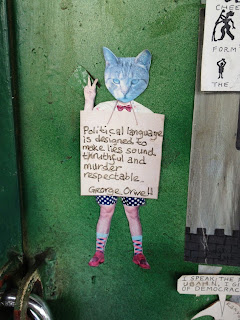 CHEE
FORM
THE
Political language
is designed to
make lies sound
thruthful and
murder
respectable.
George Orwell
I SPEAK THE
OF DEMOCRAC